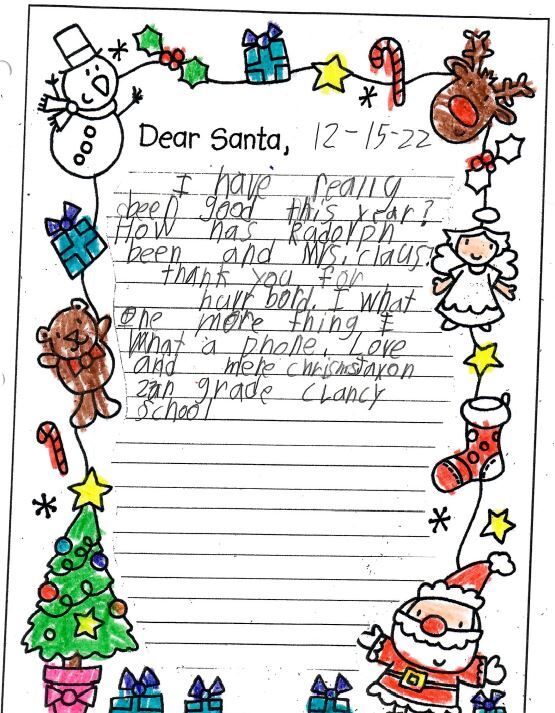 Dear Santa, 12-15-22
I have really
been good this year?
How has Radorph
been and Mrs. claus?
thank you for
hurr bord. I what
One more thing I
What a phone. Love
and mere chrismst
2an grade clancy
School